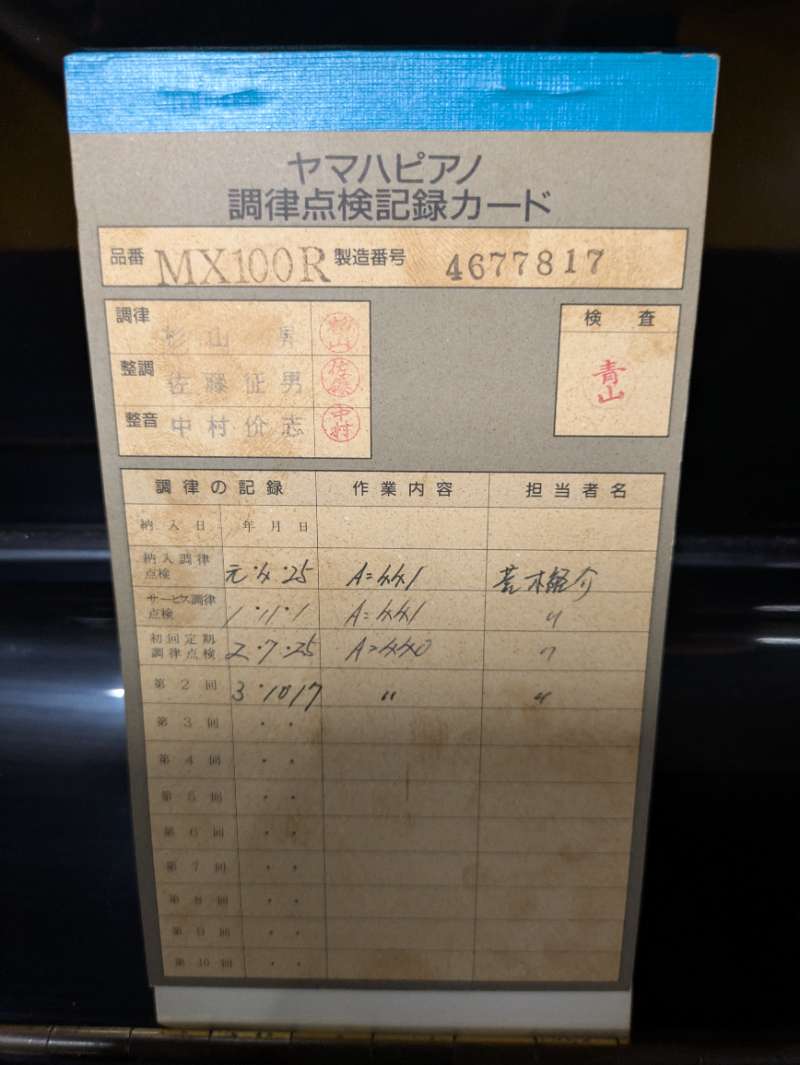 ヤマハピアノ
調律点検記録カード
品番 MX100R 製造番号 4677817
調律 杉山 男 杉山
整調 佐藤征男 佐藤
整音 中村价志 中村
検査
青山
調律の記録 作業内容 担当者名
納入日 年 月 日
納入調律点検 元・4・25 A=441 荒木
サービス調律点検 1・11・1 A=441 〃
初回定期調律点検 2・7・25 A=440 〃
第2回 3・10 17 〃 〃
第3回 ・ ・
第4回 ・ ・
第5回 ・ ・
第6回 ・ ・
第7回 ・ ・
第8回 ・ ・
第9回 ・ ・
第10回 ・ ・